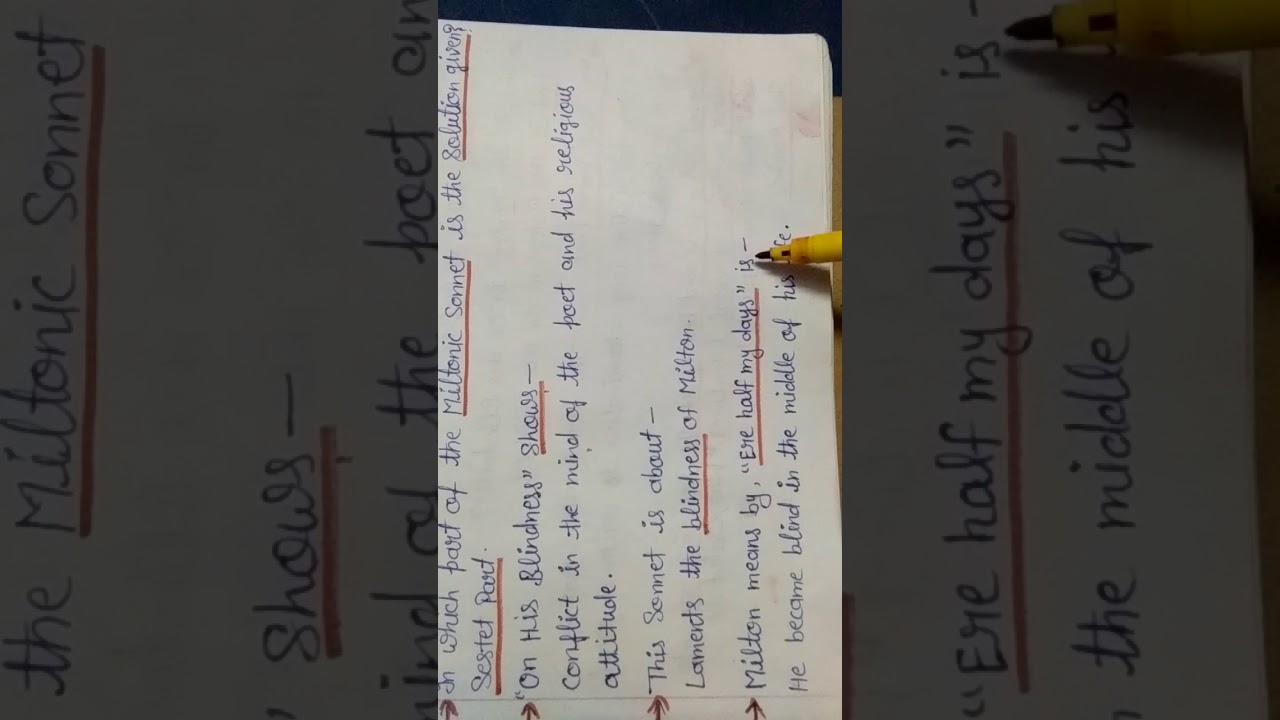 → In which part of the Miltonic Sonnet is the Solution given?
Sestet Part.
→ "On His Blindness" Shows —
Conflict in the mind of the poet and his religious
attitude.
→ This Sonnet is about —
Laments the blindness of Milton.
→ Milton means by, "Ere half my days" is —
He became blind in the middle of his